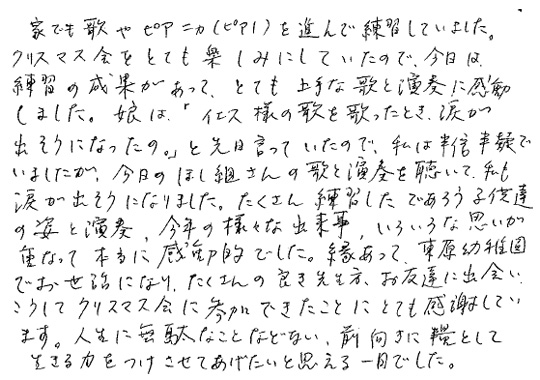 家でも歌やピアニカ(ピアノ)を進んで練習していました。
クリスマス会をとても楽しみにしていたので、今日は、
練習の成果があって、とても上手な歌と演奏に感動
しました。娘は、「イエス様の歌を歌ったとき、涙が
出そうになったの。」と先日言っていたので、私は半信半疑で
いましたが、今日のほし組さんの歌と演奏を聴いて、私も
涙が出そうになりました。たくさん練習したであろう子供達
の姿と演奏、今年の様々な出来事、いろいろな思いが
重なって本当に感動的でした。縁あって、東原幼稚園
でお世話になり、たくさんの良き先生方、お友達に出会い、
こうしてクリスマス会に参加できたことにとても感謝してい
ます。人生に無駄なことなどない、前向きに糧として
生きる力をつけさせてあげたいと思える一日でした。